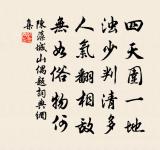 四天圍一地
浊少判清多
人氣翻相敵
無如俗物何
陳藻城山偶題詞典網
集